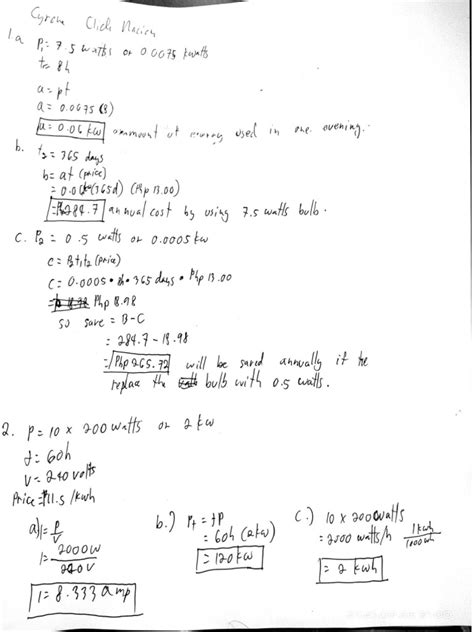 Cyrene Click Nacion
1a P₁ = 7.5 watts or 0.0075 kwatts
t = 8h
a = pt
a = 0.0075 (8)
a = 0.06 kw ammount of energy used in one evening.
b. t₂ = 365 days
b = at (price)
= 0.06 (365d) (Php 13.00)
= 284.7 annual cost by using 7.5 watts bulb.
c. P₂ = 0.5 watts or 0.0005 kw
c = P₂t₁t₂ (price)
c = 0.0005 • 8h • 365 days • Php 13.00
= Php 18.98
so save = B-C
= 284.7 - 18.98
= Php 265.72 will be saved annually if he
replace the bulb with 0.5 watts.
2. P = 10 x 200 watts or 2 kw
t = 60h
V = 240 volts
Price = ₱11.5 /kwh
a) I = P/V
I = 2000w/240v
I = 8.333 amp
b.) Pt = tP
= 60h (2kw)
= 120kw
c.) 10 x 200 watts
= 2000 watts/h 1kwh/1000wh
= 2 kwh